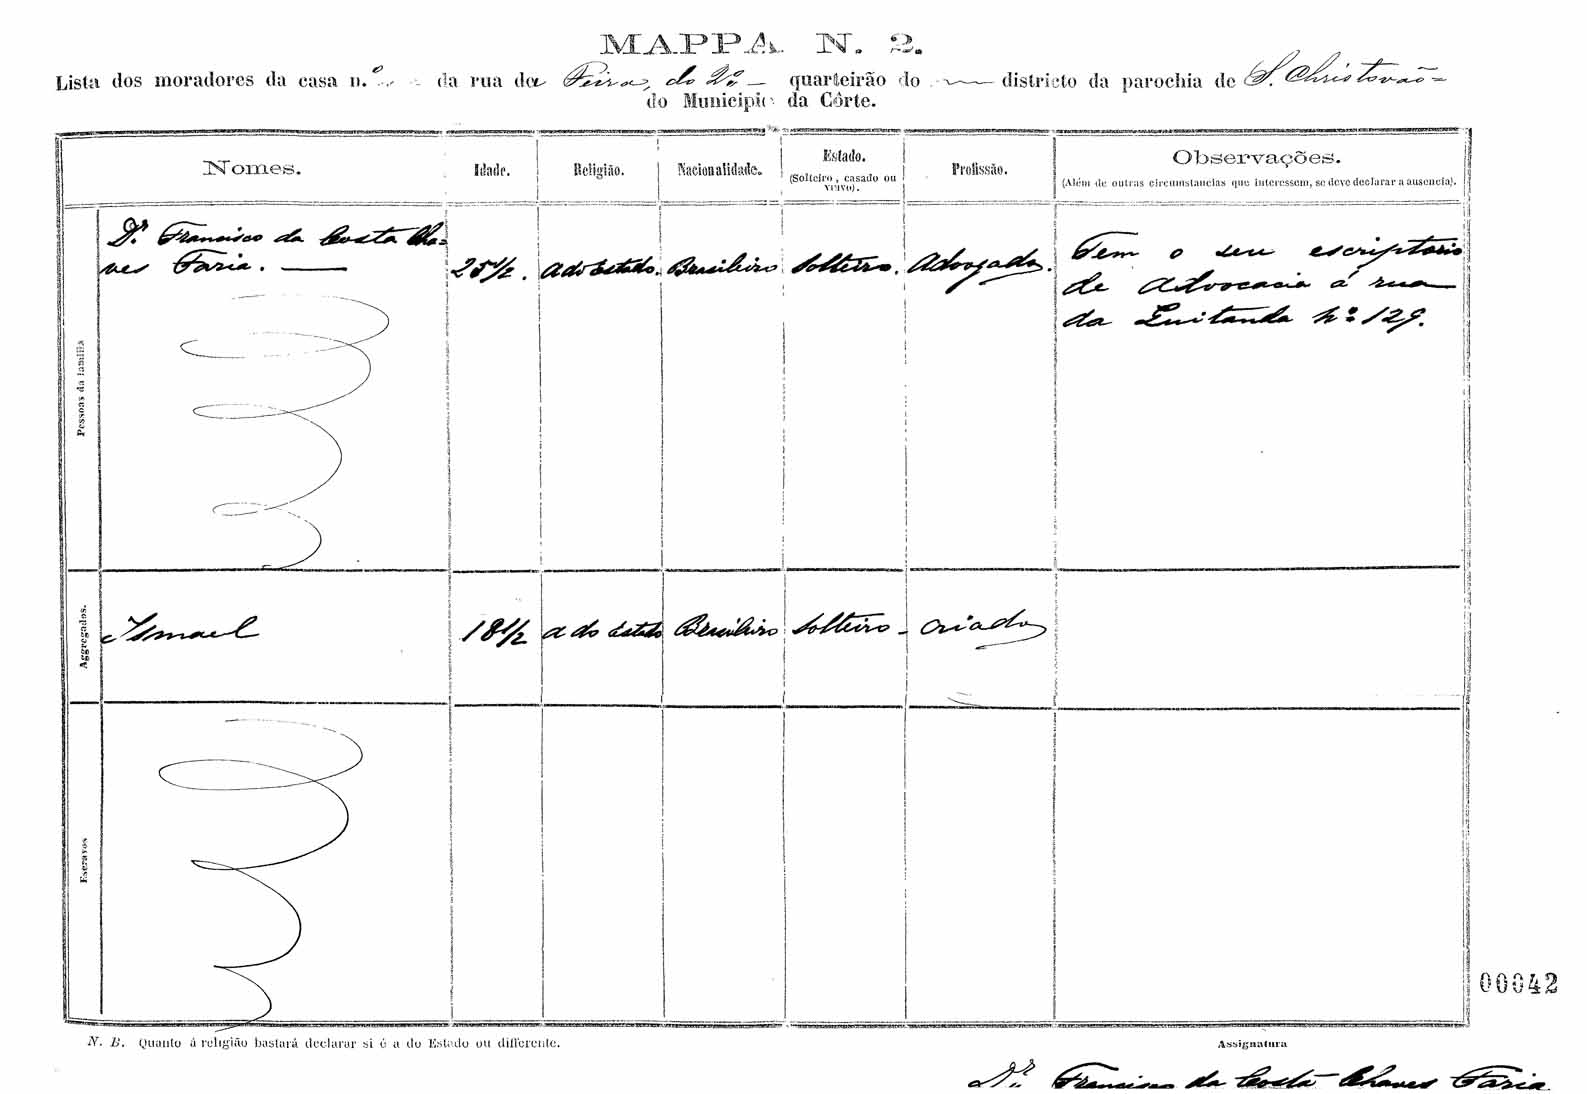 MAPPA N. 2.
Lista dos moradores da casa n.º da rua da Feira, do 2º quarteirão do — districto da parochia de S. Christovão
do Municipio da Côrte.
Nomes. Idade. Religião. Nacionalidade. Estado. (Solteiro, casado ou viuvo). Profissão. Observações. (Além de outras circumstancias que interessem, se deve declarar a ausencia).
Pessoas da familia
Dr. Francisco da Costa Cha-
ves Faria. — 25 1/2. a do Estado. Brasileiro Solteiro. Advogado.
Tem o seu escriptorio
de Advocacia á rua
da Quitanda nº 129.
Aggregados.
Ismael 18 1/2 a do Estado Brasileiro Solteiro - criado
Escravos
00042
N. B. Quanto á religião bastará declarar si é a do Estado ou differente.
Assignatura
Dr. Francisco da Costa Chaves Faria